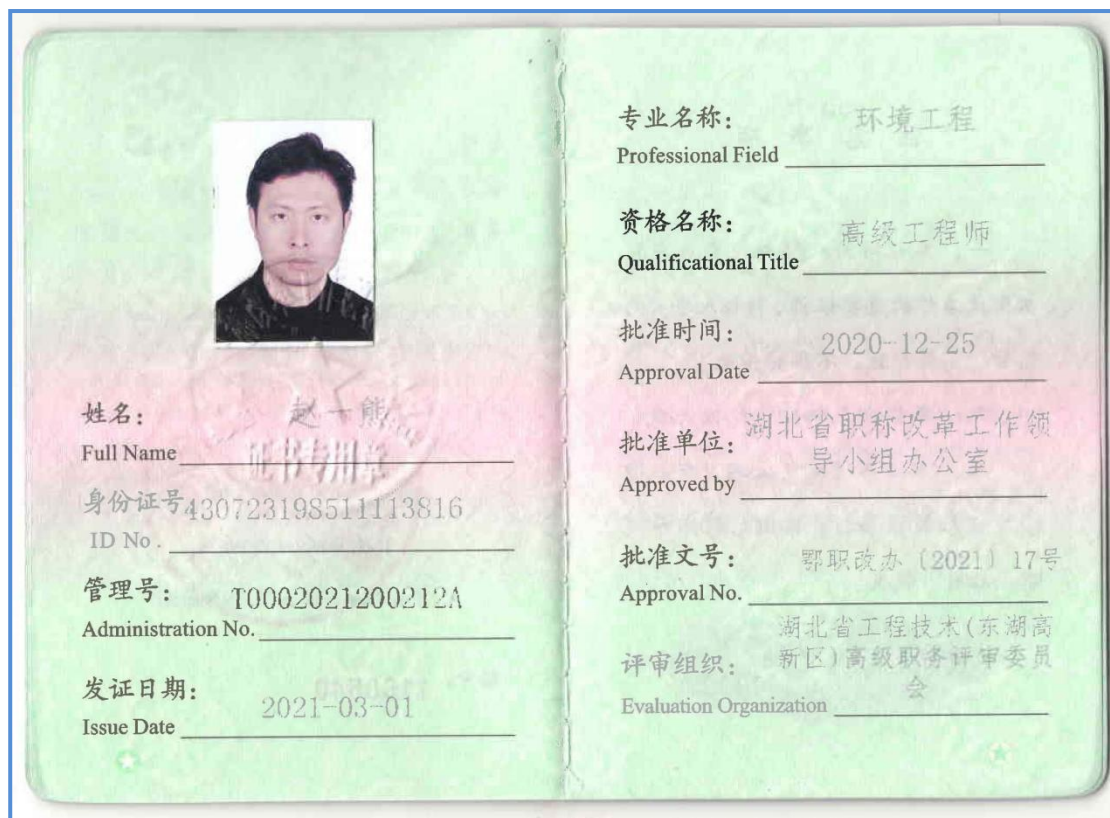 姓名：
赵一熊
Full Name
证书专用章
身份证号
430723198511113816
ID No .
管理号：
T0002021200212A
Administration No.
发证日期：
2021-03-01
Issue Date
专业名称：
环境工程
Professional Field
资格名称：
高级工程师
Qualificational Title
批准时间：
2020-12-25
Approval Date
批准单位：
湖北省职称改革工作领
导小组办公室
Approved by
批准文号：
鄂职改办〔2021〕17号
Approval No.
评审组织：
湖北省工程技术(东湖高
新区)高级职务评审委员
会
Evaluation Organization